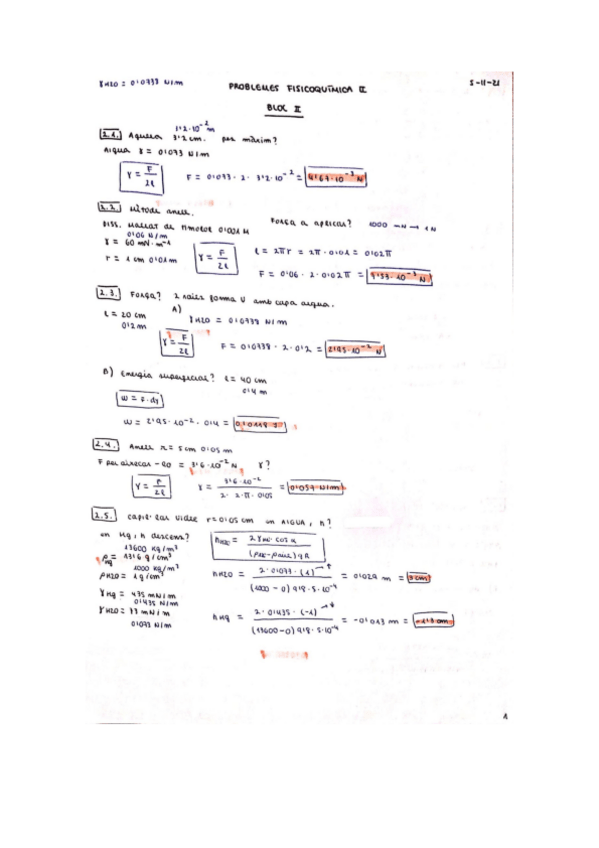 γH2O = 0'0738 N/m
PROBLEMES FISICOQUÍMICA II
5-11-21
BLOC II
3'2·10⁻² m
2.1. Agulla 3'2 cm. per màxim?
Aigua γ = 0'073 N/m
γ = F/2l
F = 0'073 · 2 · 3'2·10⁻² = 4'67·10⁻³ N
2.2. Mètode anell.
Força a aplicar? 1000 mN → 1 N
0'06 N/m
γ = 60 mN·m⁻¹
r = 1 cm 0'01m
γ = F/2l
l = 2πr = 2π·0'01 = 0'02π
F = 0'06 · 2 · 0'02π = 7'53·10⁻³ N.
2.3. Força? 2 forma U amb capa aigua.
l = 20 cm
0'2 m
A)
γH2O = 0'0738 N/m
γ = F/2l
F = 0'0738 · 2 · 0'2 = 2'95·10⁻² N
B) Energia superficial? l = 40 cm
0'4 m
W = F·dy
W = 2'95·10⁻² · 0'4 = 0'0118 J
2.4. Anell r = 5 cm 0'05 m
F per aixecar-lo = 3'6·10⁻² N γ?
γ = F/2l
γ = 3'6·10⁻² / 2·2·π·0'05 = 0'057 N/m
2.5. capil·lar vidre r = 0'05 cm en AIGUA, h?
en Hg, h descens?
13600 kg/m³
ρHg = 13'6 g/cm³
1000 kg/m³
ρH2O = 1 g/cm³
γHg = 435 mN/m
0'435 N/m
γH2O = 73 mN/m
0'073 N/m
hH2O = 2·0'073·(1) / (1000-0) 9'8·5·10⁻⁴ = 0'029 m = 3 cm
hHg = 2·0'435·(-1) / (13600-0) 9'8·5·10⁻⁴ = -0'013 m = -1'3 cm
1